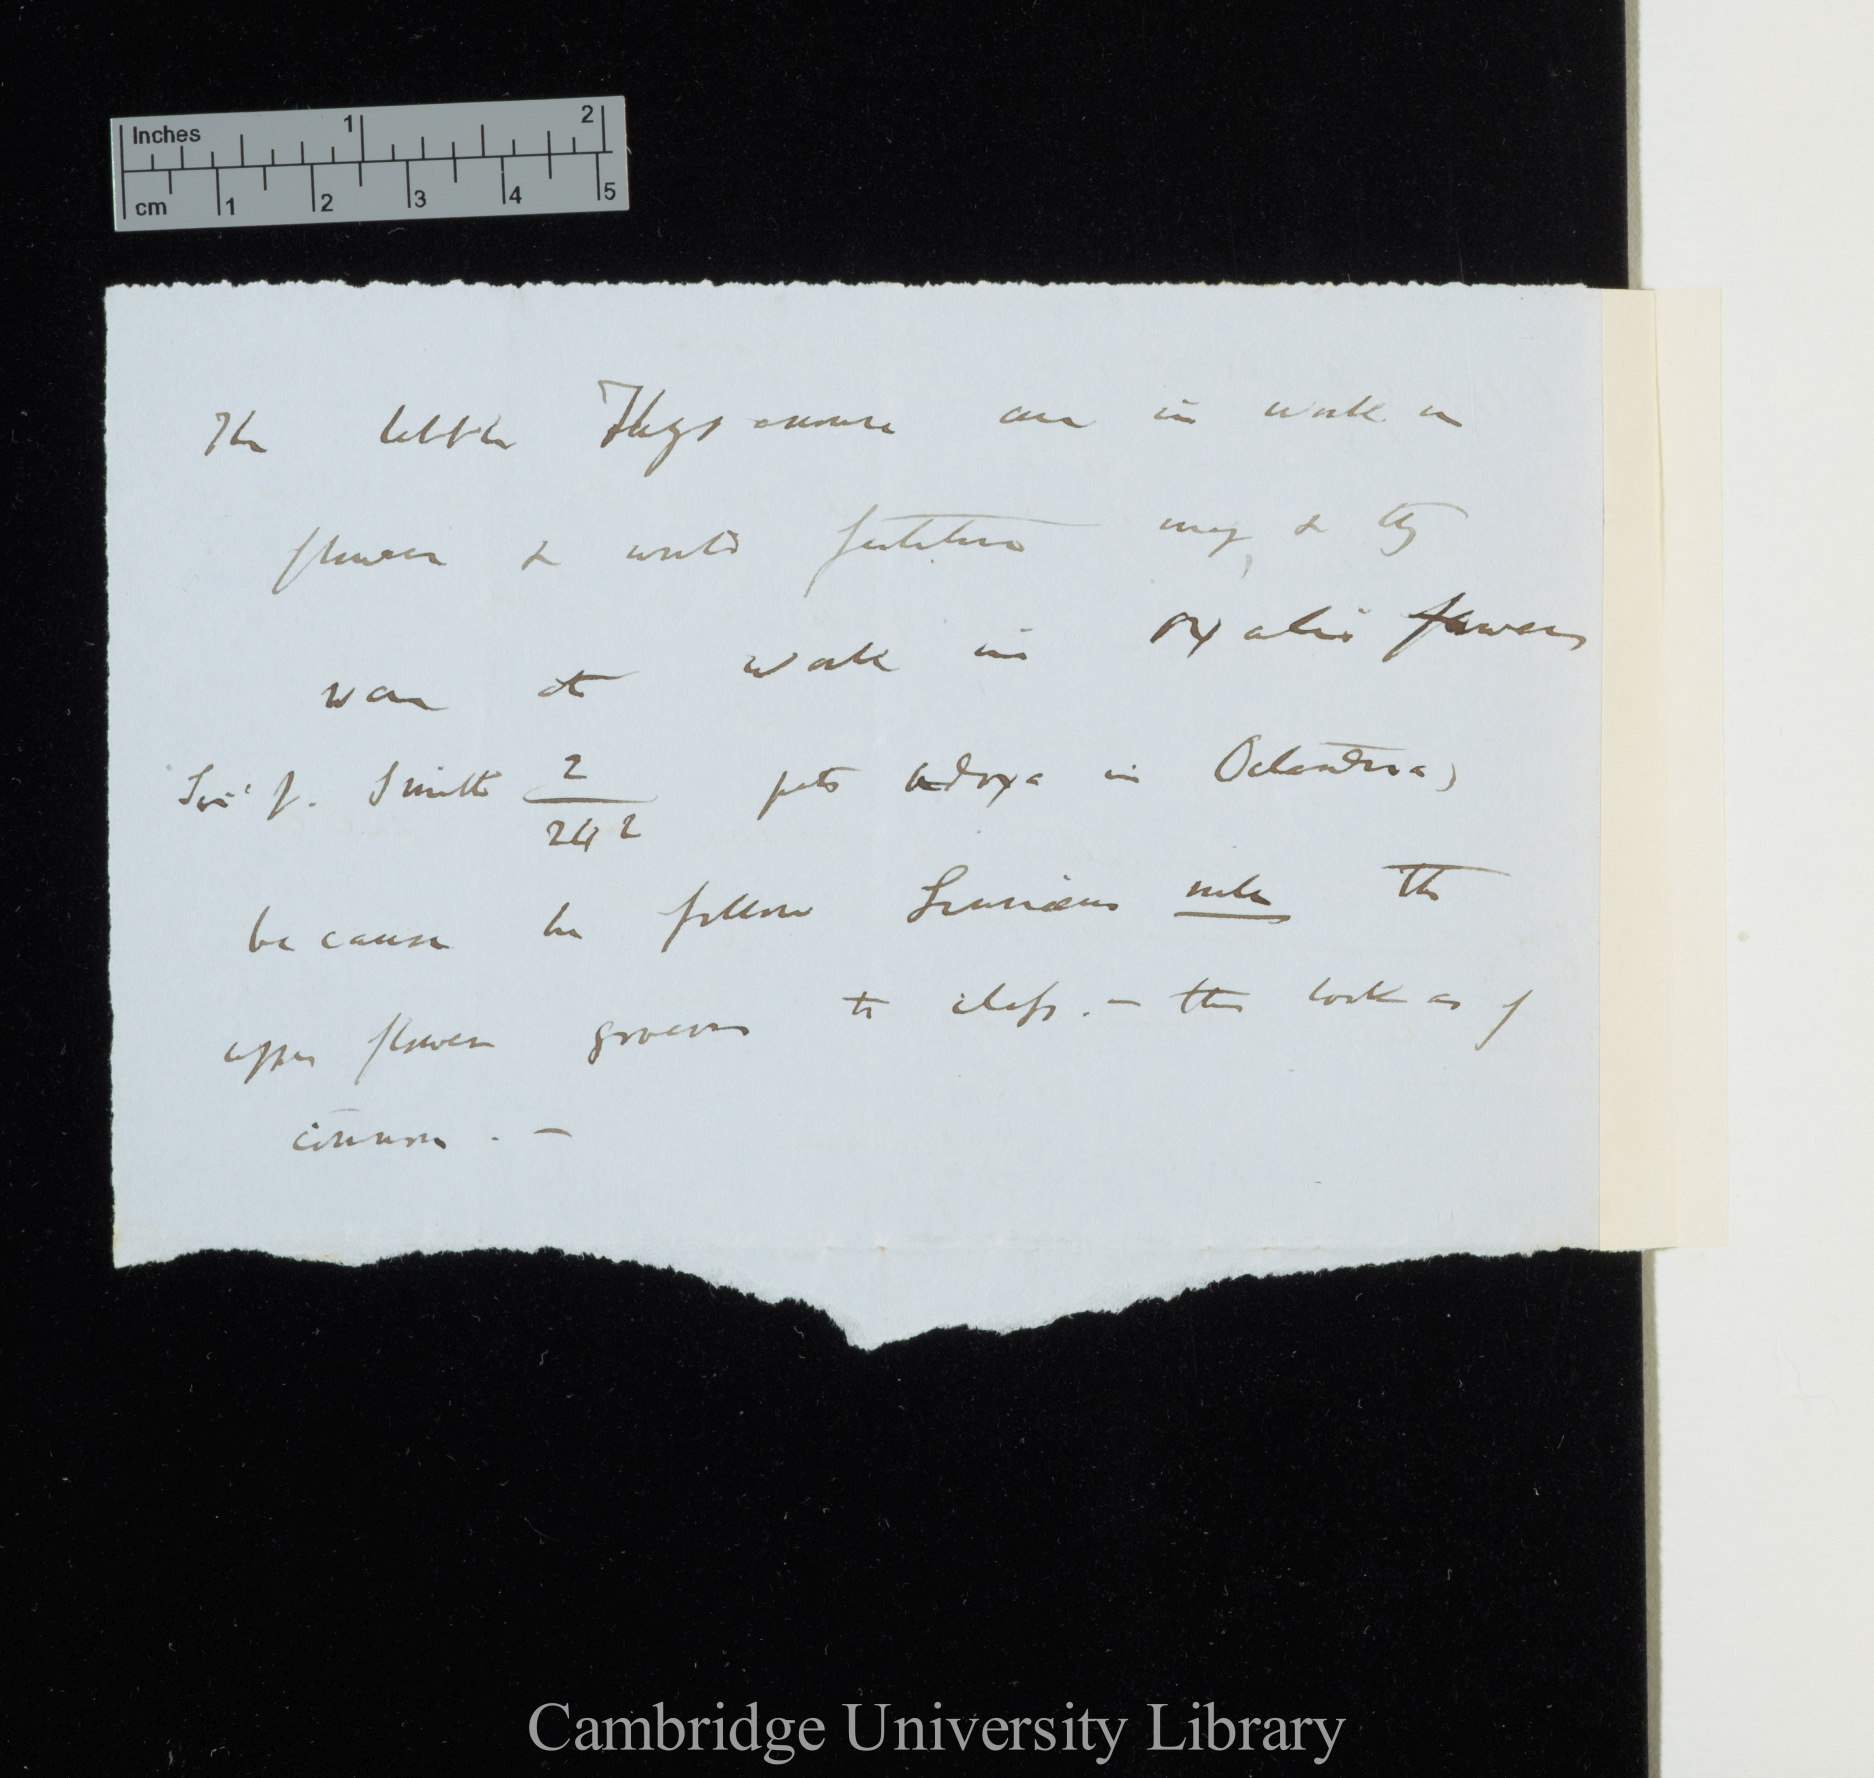 Inches 1 2
cm 1 2 3 4 5
The little Thysanura are in work in
flower & would fertilise may, & they
were at work in Oxalis flowers
Sir J. Smith 2/242 puts Adoxa in Octandria,
because he follows Linnæus rule the
upper flower governs to class. — this looks as if
common. —
Cambridge University Library